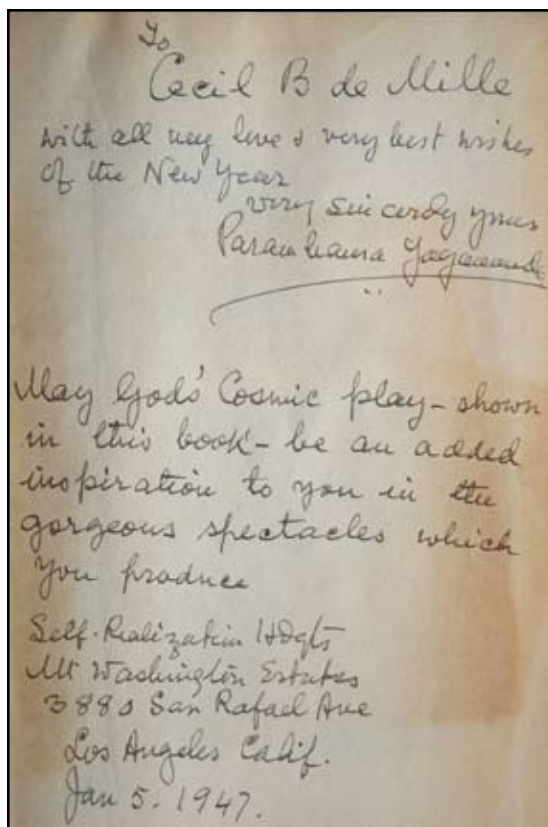 To
Cecil B de Mille
with all my love & very best wishes
of the New Year
very sincerely yours
Paramhansa Yogananda
May God's Cosmic play - shown
in this book - be an added
inspiration to you in the
gorgeous spectacles which
you produce
Self-Realization Hdqts
Mt Washington Estates
3880 San Rafael Ave
Los Angeles Calif.
Jan 5. 1947.